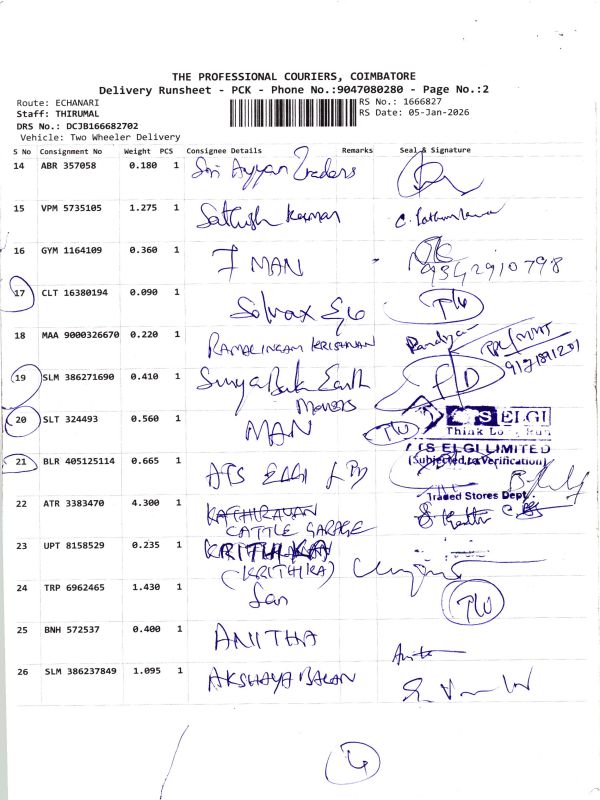 THE PROFESSIONAL COURIERS, COIMBATORE
Delivery Runsheet - PCK - Phone No.:9047080280 - Page No.:2
Route: ECHANARI
RS No.: 1666827
Staff: THIRUMAL
RS Date: 05-Jan-2026
DRS No.: DCJB166682702
Vehicle: Two Wheeler Delivery
S No Consignment No Weight PCS Consignee Details Remarks Seal & Signature
14 ABR 357058 0.180 1 Sri Ayyan Traders
15 VPM 5735105 1.275 1 Sathish Kumar
16 GYM 1164109 0.360 1 J MAN
9342910798
17 CLT 16380194 0.090 1
18 MAA 9000326670 0.220 1 RAMALINGAM KRISHNAN Pandiyan
19 SLM 386271690 0.410 1 Surya Bala Earth
Movers
20 SLT 324493 0.560 1 MAN
ELGI
21 BLR 405125114 0.665 1 ATS ELGI
ATS ELGI LIMITED
(Subjected to Verification)
Traded Stores Dept.
22 ATR 3383470 4.300 1 KATHIRAVAN
CATTLE GARAGE
23 UPT 8158529 0.235 1 KRITHIKA
(KRITHIKA)
24 TRP 6962465 1.430 1
25 BNH 572537 0.400 1 ANITHA
26 SLM 386237849 1.095 1 AKSHAYA BALAN